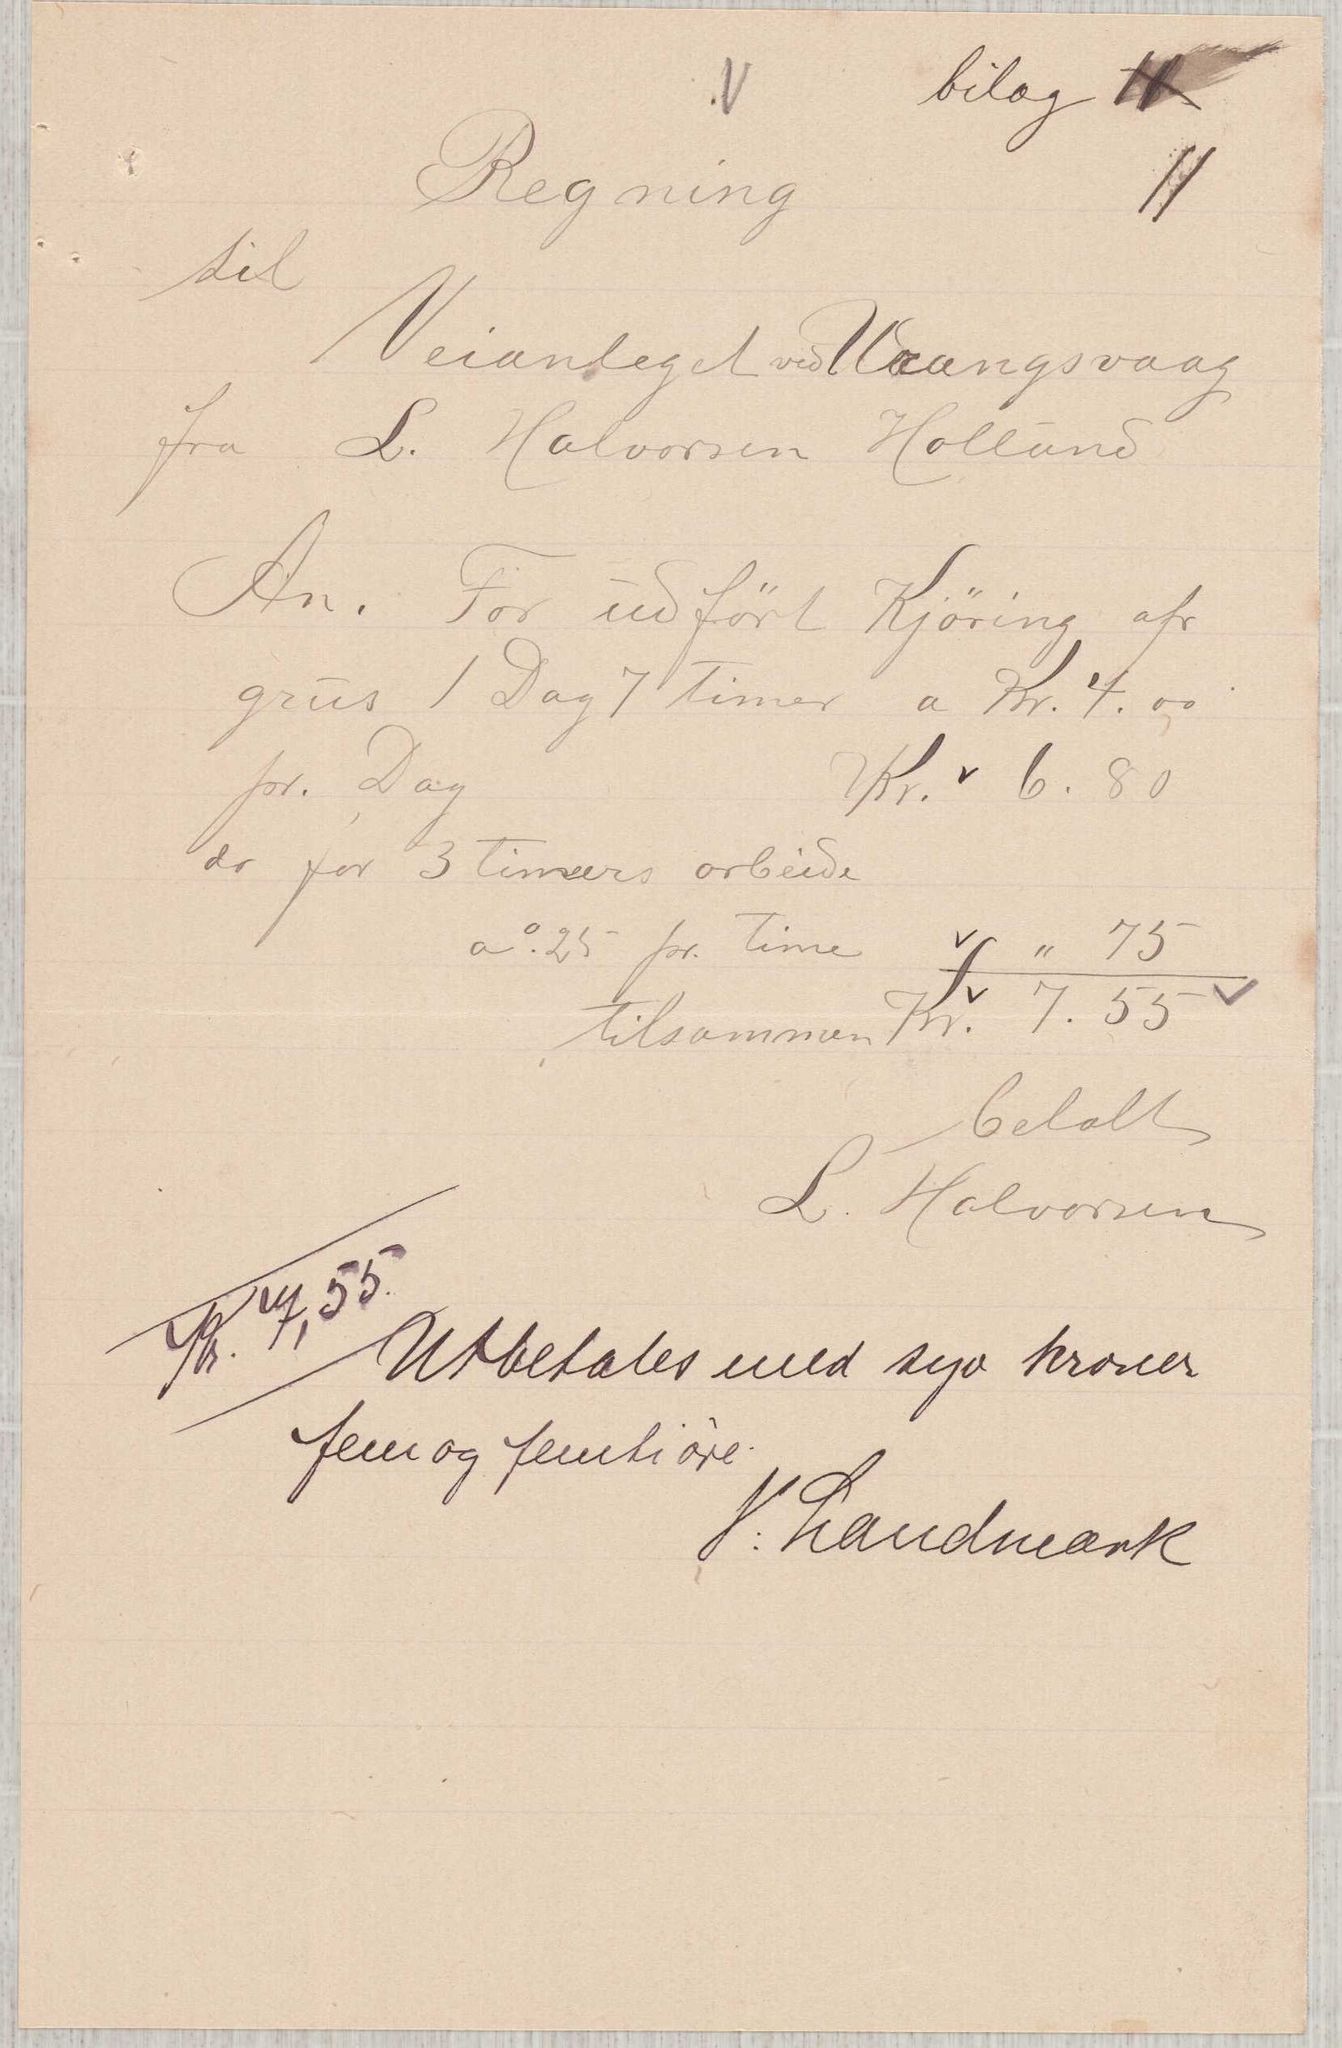 bilag
11
Regning
til
Veianleget ved Vrangsvaag
fra L. Halvorsen Hollund
An. For udført Kjøring afr
grus 1 Dag 7 timer a Kr. 4. 00
pr. Dag Kr. 6. 80
do for 3 timers arbeide
a 0.25 pr. time " 75
tilsammen Kr. 7. 55
betalt
L. Halvorsen
Kr. 7,55.
Utbetales med syv kroner
fem og femti øre.
N. Landmark